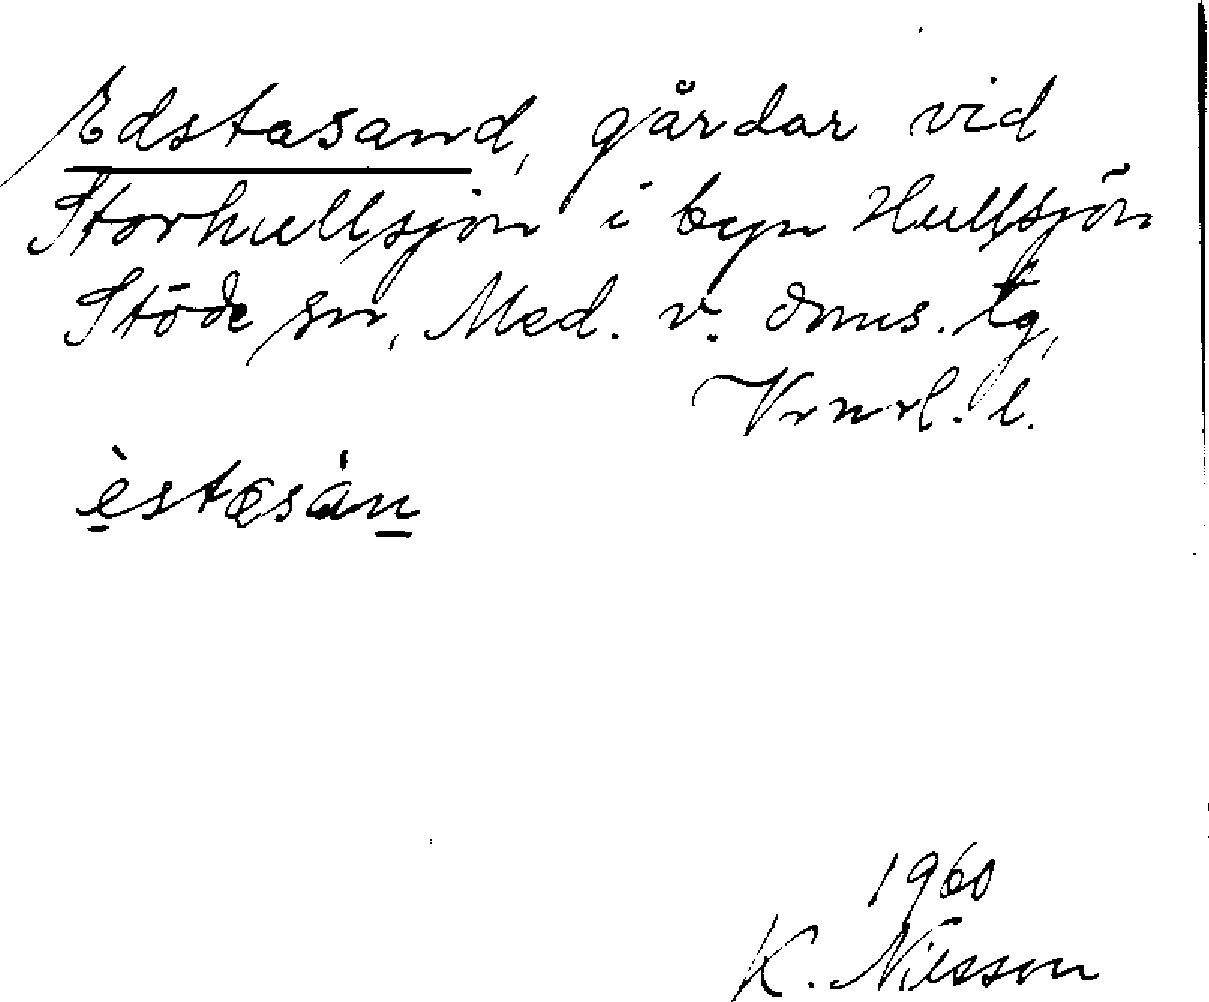 Edstasand, gårdar vid
Storhullsjön i byn Hullsjön
Stöde sn, Med. v. dmus. tg,
Vrnrl. l.
èstasàn
1960
K. Nilsson